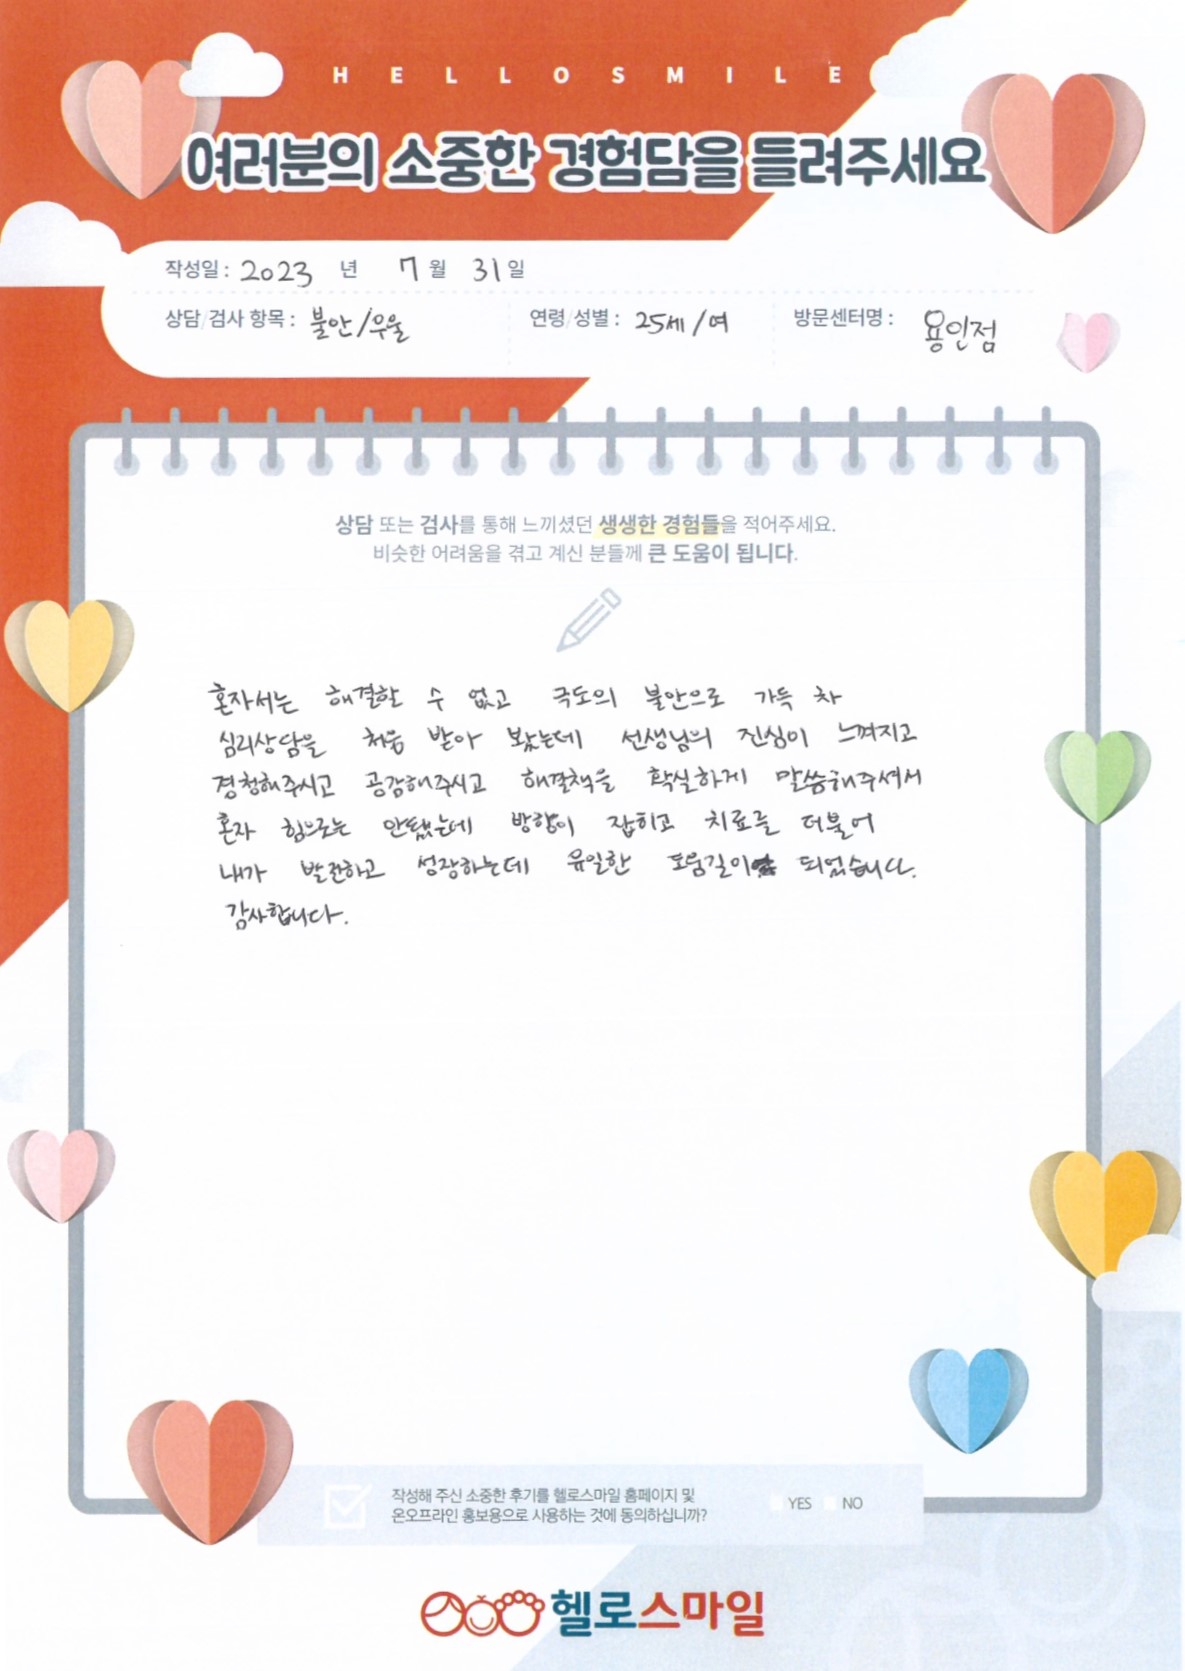 HELLOSMILE
여러분의 소중한 경험담을 들려주세요
작성일 : 2023 년 7 월 31 일
상담/검사 항목 : 불안/우울 연령/성별 : 25세/여 방문센터명 : 용인점
상담 또는 검사를 통해 느끼셨던 생생한 경험들을 적어주세요.
비슷한 어려움을 겪고 계신 분들께 큰 도움이 됩니다.
혼자서는 해결할 수 없고 극도의 불안으로 가득 차
심리상담을 처음 받아 봤는데 선생님의 진심이 느껴지고
경청해주시고 공감해주시고 해결책을 확실하게 말씀해주셔서
혼자 힘으로는 안됐는데 방향이 잡히고 치료를 더불어
내가 발전하고 성장하는데 유일한 도움길이 되었습니다.
감사합니다.
작성해 주신 소중한 후기를 헬로스마일 홈페이지 및
온오프라인 홍보용으로 사용하는 것에 동의하십니까? YES NO
헬로스마일